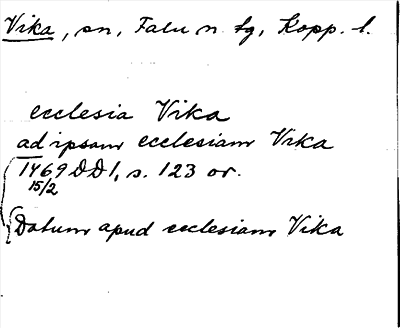 Vika, sn, Falu n. tg, Kopp. l.
ecclesia Vika
ad ipsam ecclesiam Vika
1469 DD1, s. 123 or.
15/2
Datum apud ecclesiam Vika